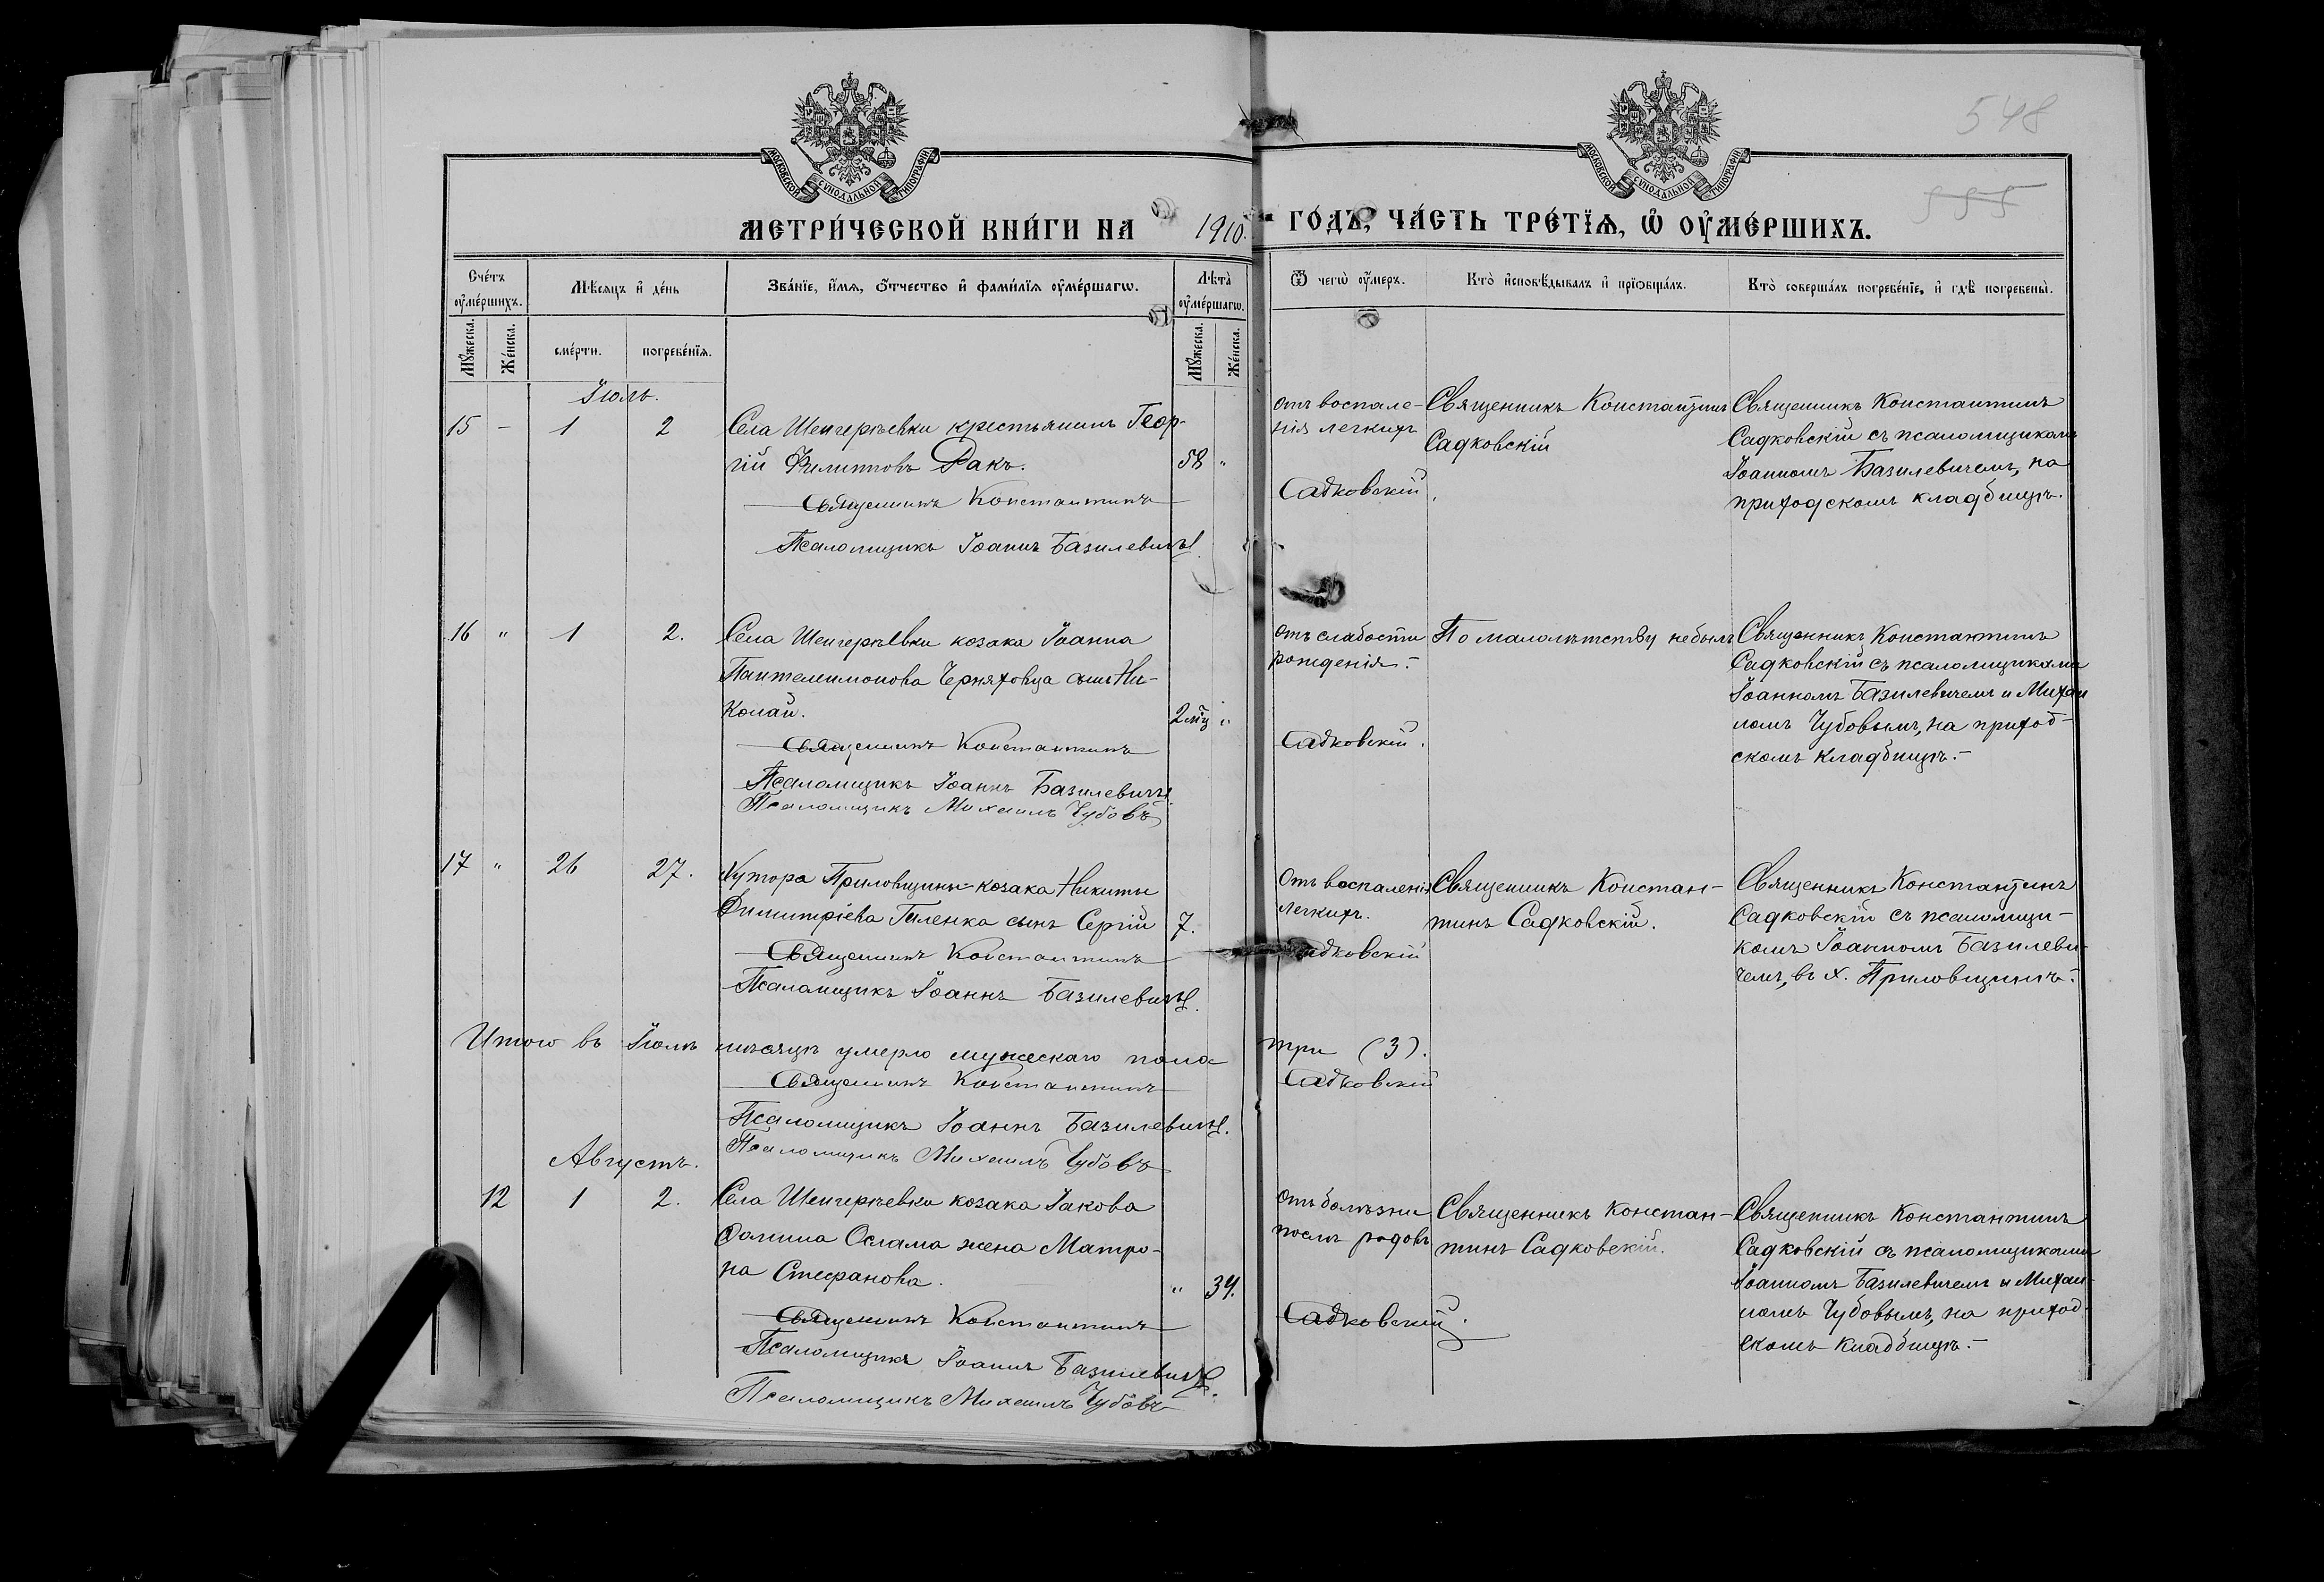 548
555
МОСКОВСКОЙ СѴНОДАЛЬНОЙ ТИПОГРАФІИ
МОСКОВСКОЙ СѴНОДАЛЬНОЙ ТИПОГРАФІИ
МЕТРИ́ЧЕСКОЙ КНИ́ГИ НА 1910. ГО́ДЪ, ЧА́СТЬ ТРЕ́ТЇѦ, Ѡ҆ ОУ҆МЕ́РШИХЪ.
Сче́тъ оу҆ме́ршихъ.
Мѣ́сѧцъ и҆ де́нь
Зва́нїе, и҆́мѧ, ѻ҆́тчество и҆ фами́лїѧ оу҆ме́ршагѡ.
Лѣта̀ оу҆ме́ршагѡ.
Ѿ чегѡ̀ оу҆́меръ.
Кто̀ и҆сповѣ́дывалъ и҆ прїѻбща́лъ.
Кто̀ соверша́лъ погребе́нїе, и҆ гдѣ̀ погребены̀.
Мꙋ́жеска. Же́нска. сме́рти. погребе́нїѧ. Мꙋ́жеска. Же́нска.
Іюль.
15 - 1 2 Села Шенгерѣевки крестьянинъ Геор-
гій Филипповъ Ракъ. 58 "
Священникъ Константинъ Садковскій.
Псаломщикъ Іоаннъ Базилевичъ
отъ воспале-
нія легкихъ
Священникъ Константинъ
Садковскій
Священникъ Константинъ
Садковскій съ псаломщикомъ
Іоанномъ Базилевичемъ, на
приходскомъ кладбищѣ.
16 " 1 2. Села Шенгерѣевки козака Іоанна
Пантелимонова Черняховца сынъ Ни-
колай. 2 мц "
Священникъ Константинъ Садковскій.
Псаломщикъ Іоаннъ Базилевичъ
Псаломщикъ Михаилъ Чубовъ
отъ слабости
рожденія.-
По малолѣтству небылъ
Священникъ Константинъ
Садковскій съ псаломщиками
Іоанномъ Базилевичемъ и Михаи
ломъ Чубовымъ, на приход-
скомъ кладбищѣ.-
17 " 26 27. Хутора Приловщины козака Никиты
Димитріева сынъ Сергій 7.
Священникъ Константинъ Садковскій
Псаломщикъ Іоаннъ Базилевичъ.
Отъ воспаленія
легкихъ.
Священникъ Констан-
тинъ Садковскій.
Священникъ Константинъ
Садковскій съ псаломщи-
комъ Іоанномъ Базилеви-
чемъ, въ х. Приловщинѣ.-
Итого въ Іюлѣ мѣсяцѣ умерло мужескаго пола три (3).
Священникъ Константинъ Садковскій
Псаломщикъ Іоаннъ Базилевичъ.
Псаломщикъ Михаилъ Чубовъ
Августъ.
12 1 2. Села Шенгерѣевки козака Іакова
Фомина Ослама жена Матро-
на Стефанова. " 34.
Священникъ Константинъ Садковскій.
Псаломщикъ Іоаннъ Базилевичъ.
Псаломщикъ Михаилъ Чубовъ
отъ болѣзни
послѣ родовъ
Священникъ Констан-
тинъ Садковскій.
Священникъ Константинъ
Садковскій съ псаломщиками
Іоанномъ Базилевичемъ и Михаи-
ломъ Чубовымъ, на приход-
скомъ кладбищѣ.-